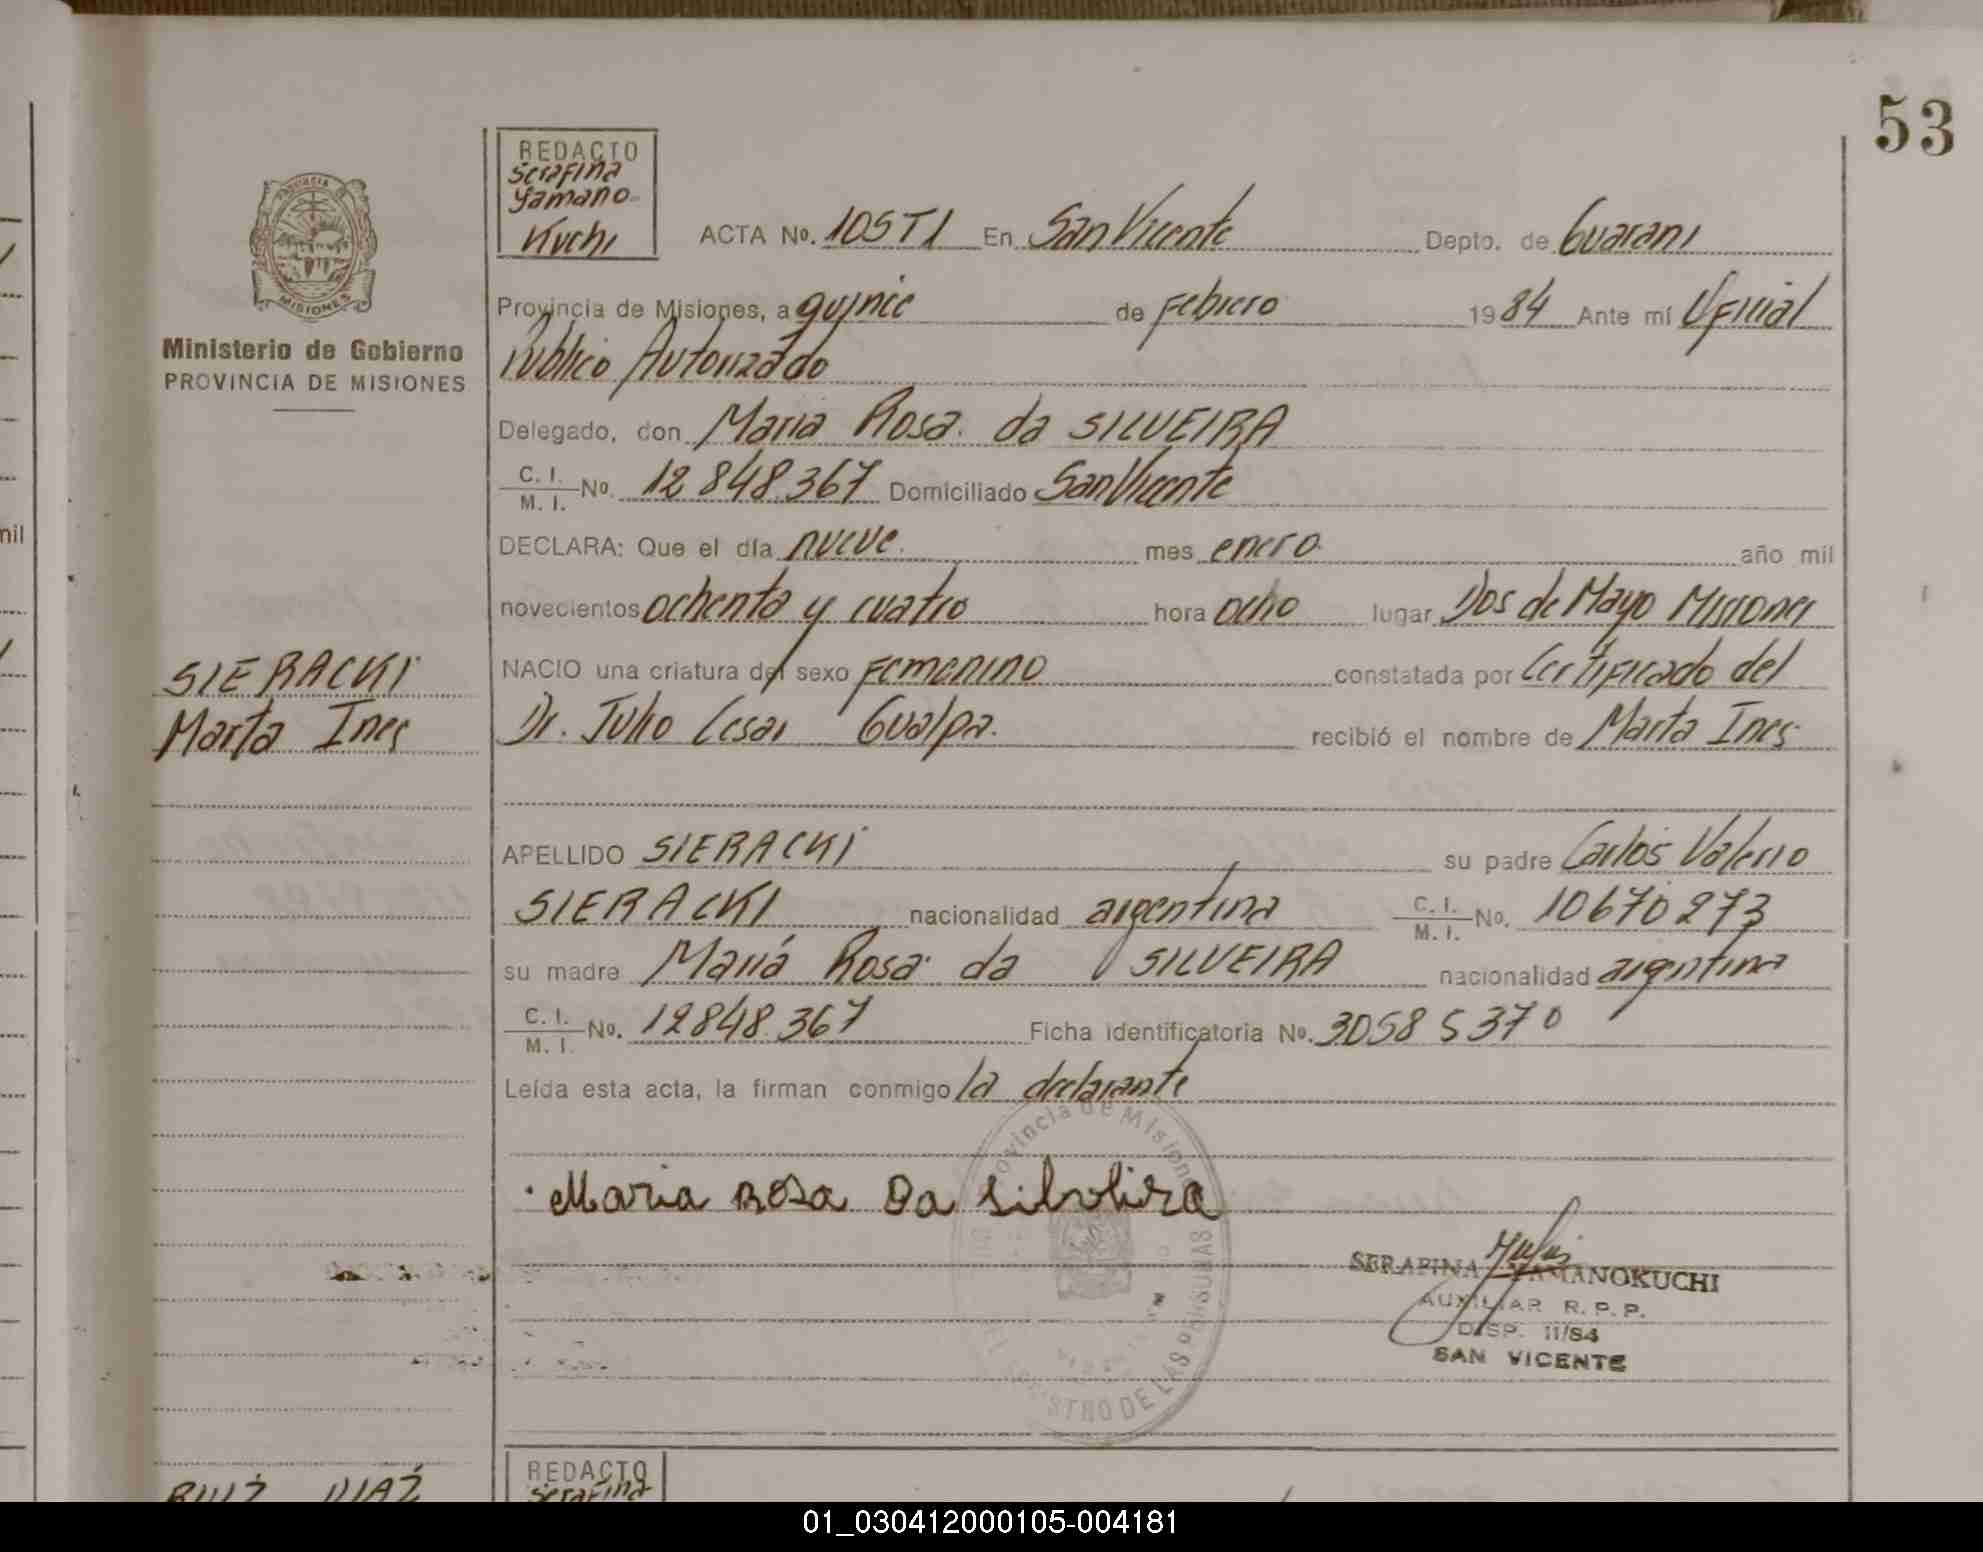 53
REDACTO
Serafina
Yamano-
Kuchi
ACTA No. 105T1 En San Vicente Depto. de Guarani
PROVINCIA
MISIONES
Provincia de Misiones, a quince de Febrero 1984 Ante mí Oficial
Ministerio de Gobierno
PROVINCIA DE MISIONES
Público Autorizado
Delegado, don Maria Rosa da SILVEIRA
C. I.
M. I. No. 12 848.367 Domiciliado San Vicente
mil
DECLARA: Que el día nueve. mes enero. año mil
novecientos ochenta y cuatro hora ocho lugar Dos de Mayo Misiones
SIERACKI
NACIO una criatura del sexo Femenino constatada por Certificado del
Marta Ines
Dr. Julio Cesar Gualpa. recibió el nombre de Marta Ines
APELLIDO SIERACKI su padre Carlos Valerio
SIERACKI nacionalidad argentina C. I.
M. I. No. 10670273
su madre María Rosa da SILVEIRA nacionalidad argentina
C. I.
M. I. No. 12848.367 Ficha identificatoria No. 30585370
Leída esta acta, la firman conmigo la declarante
Provincia de Misiones
Maria Rosa Da Silveira
SERAFINA YAMANOKUCHI
AUXILIAR R. P. P.
DISP. 11/84
SAN VICENTE
REGISTRO DE LAS PERSONAS
REDACTO
Serafina
RUIZ DIAZ
01_030412000105-004181